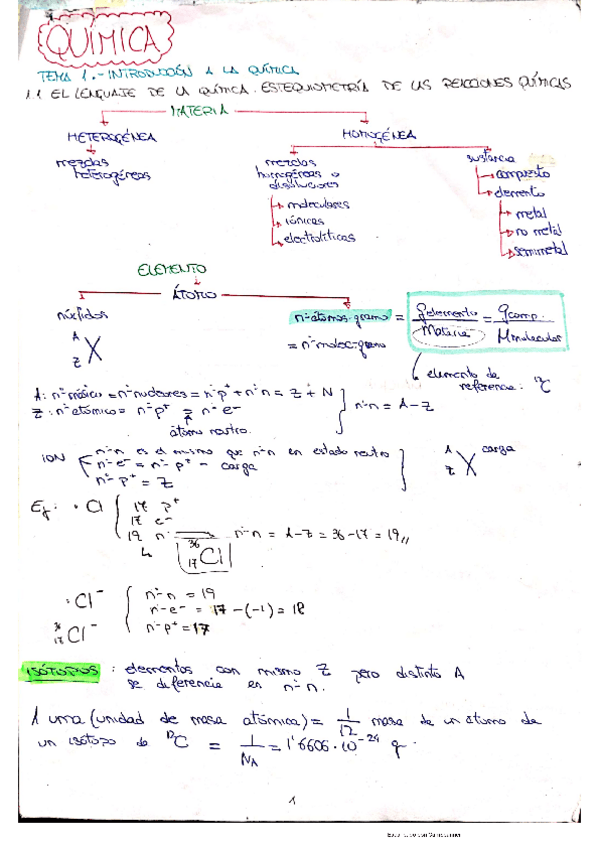 QUÍMICA
TEMA 1.- INTRODUCCIÓN A LA QUÍMICA
1.1 EL LENGUAJE DE LA QUÍMICA. ESTEQUIOMETRÍA DE LAS REACCIONES QUÍMICAS
MATERIA
HETEROGÉNEA HOMOGÉNEA
mezclas heterogéneas
mezclas homogéneas o disoluciones
moleculares
iónicas
electrolíticas
sustancia
compuesto
elemento
metal
no metal
semimetal
ELEMENTO
ÁTOMO
núclidos
A
Z X
nº átomos-gramo = g elemento / M atómica = g comp. / M molecular
= nº molec-gramo
elemento de referencia: ¹²C
A: nº másico = nº nucleones = nº p⁺ + nº n = Z + N
Z: nº atómico = nº p⁺ = nº e⁻
átomo neutro.
nº n = A - Z
ION
nº n es el mismo que nº n en estado neutro
nº e⁻ = nº p⁺ - carga
nº p⁺ = Z
A carga
Z X
Ej: · Cl
17 p⁺
17 e⁻
19 n nº n = A - Z = 36 - 17 = 19
36
17 Cl
· Cl⁻
nº n = 19
nº e⁻ = 17 - (-1) = 18
nº p⁺ = 17
36
17 Cl⁻
ISÓTOPOS: elementos con mismo Z pero distinto A
se diferencia en nº n.
1 uma (unidad de masa atómica) = 1/12 masa de un átomo de
un isótopo de ¹²C = 1/NA = 1'6606·10⁻²⁴ g.
1